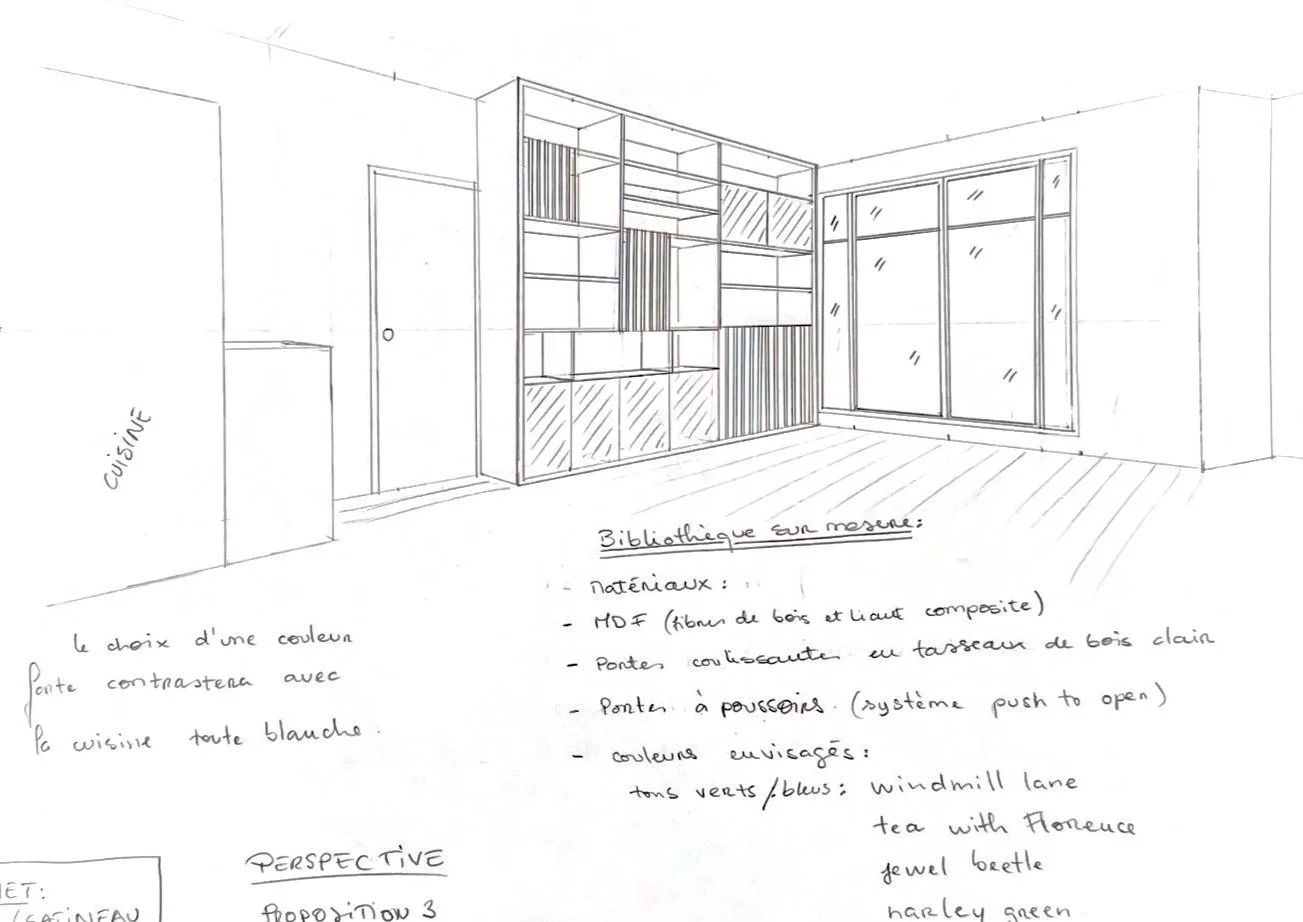 CUISINE
Bibliothèque sur mesure:
- Matériaux:
- MDF (fibres de bois et liant composite)
- Portes coulissantes en tasseaux de bois clair
- Portes à poussoirs. (système push to open)
- couleurs envisagés:
tons verts/bleus: windmill lane
tea with Florence
jewel beetle
harley green
le choix d'une couleur
forte contrastera avec
la cuisine toute blanche.
PERSPECTIVE
PROPOSITION 3
ET:
/GATINEAU